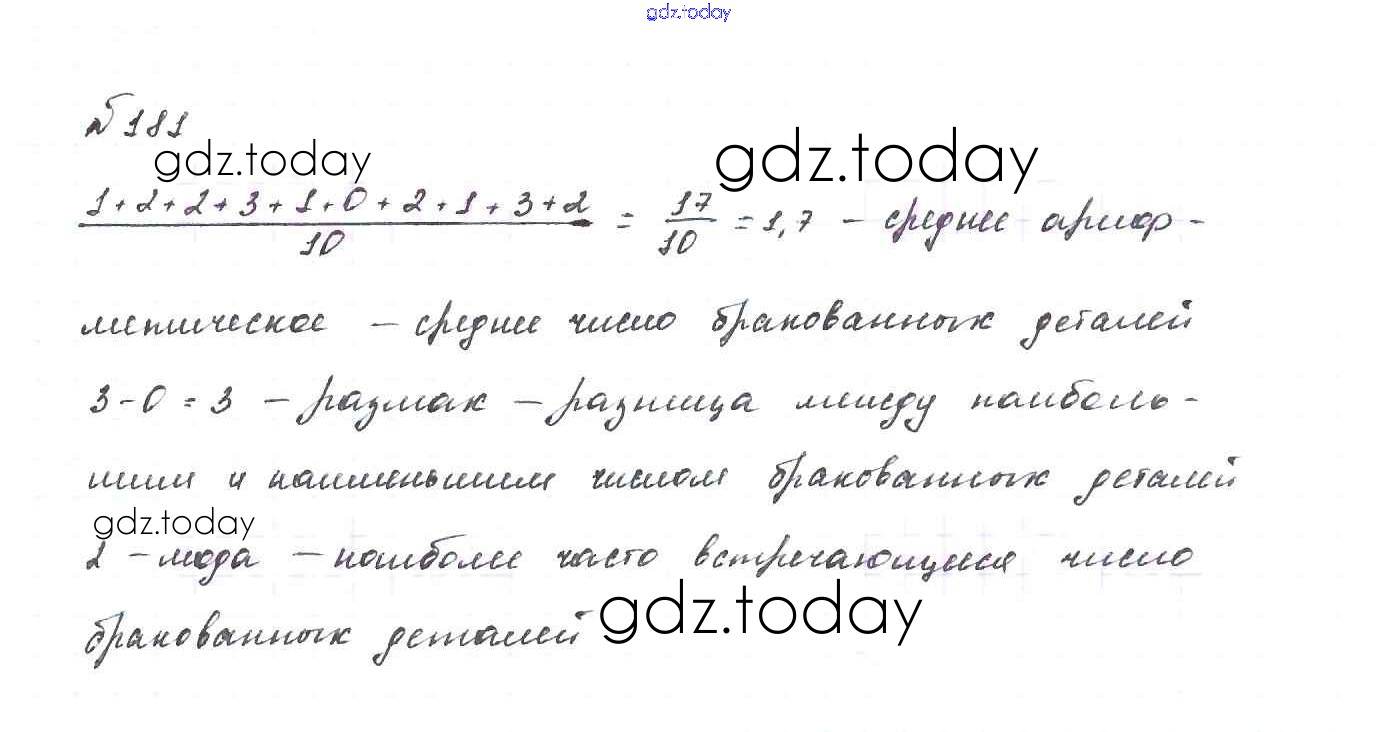 gdz.today
№ 181
gdz.today gdz.today
1+2+2+3+1+0+2+1+3+2 / 10 = 17/10 = 1,7 – среднее ариф-
метическое – среднее число бракованных деталей
3-0=3 – размах – разница между наиболь-
шим и наименьшим числом бракованных деталей
gdz.today
2 – мода – наиболее часто встречающееся число
бракованных деталей
gdz.today